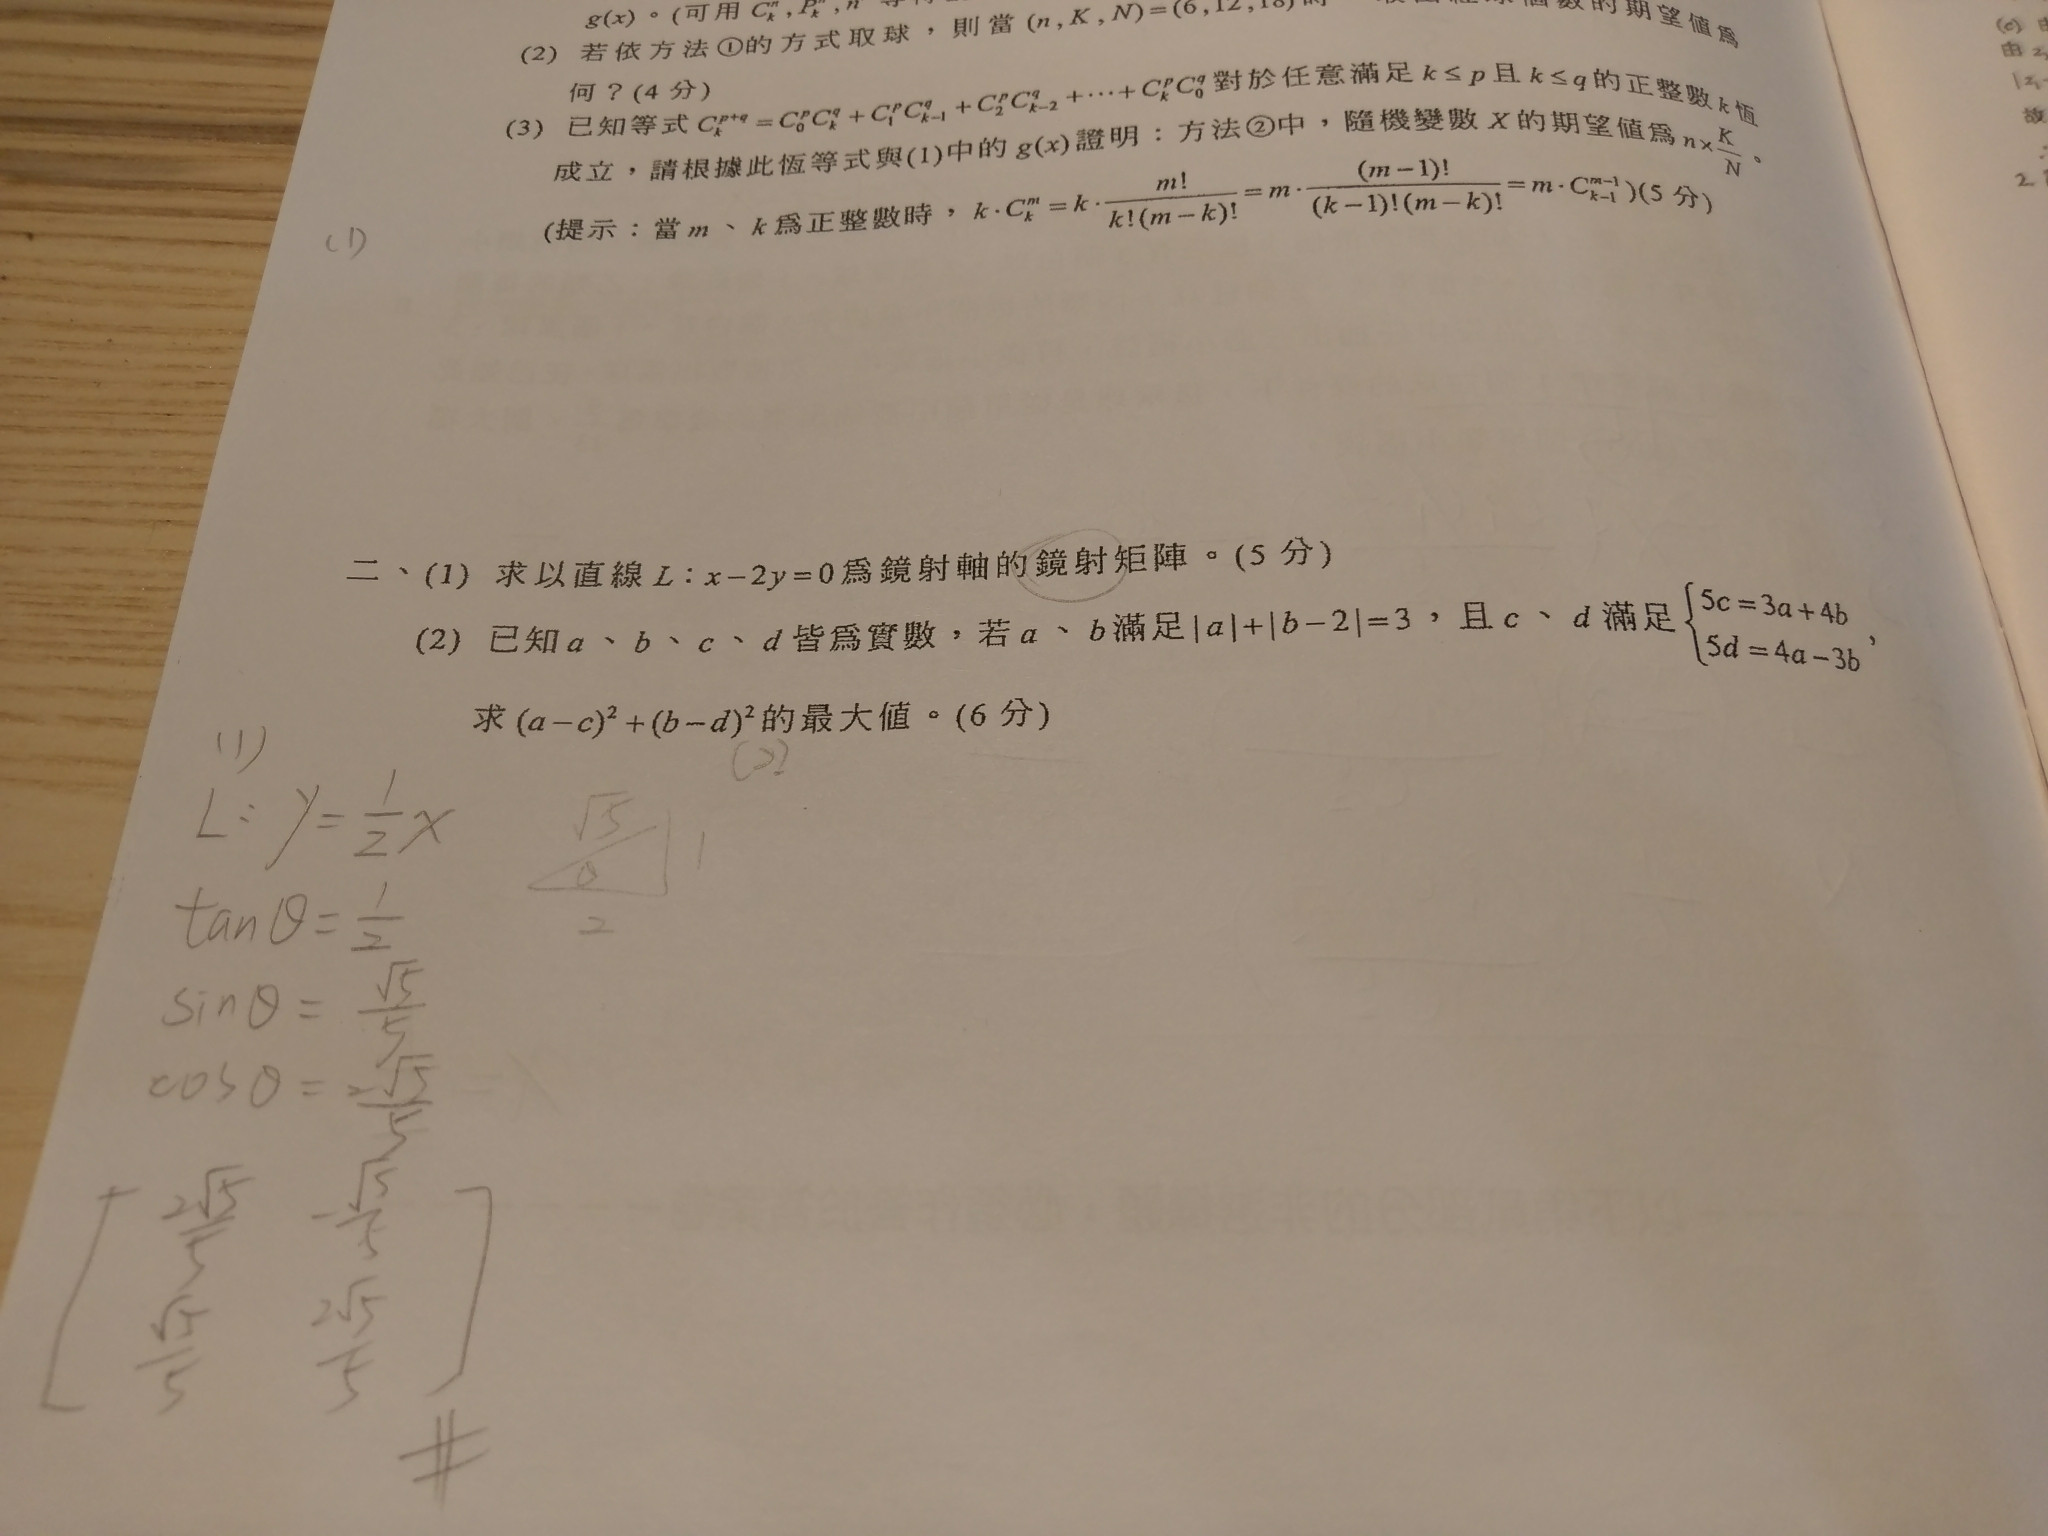 g(x)。(可用 C_k^n , P_k^n , n^k
(2) 若依方法①的方式取球，則當 (n, K, N)=(6,12,18)時
個數的期望值爲
何？(4 分)
(3) 已知等式 C_k^{p+q} = C_0^p C_k^q + C_1^p C_{k-1}^q + C_2^p C_{k-2}^q + ⋯ + C_k^p C_0^q 對於任意滿足 k ≤ p 且 k ≤ q 的正整數 k 恆
成立，請根據此恆等式與(1)中的 g(x) 證明：方法②中，隨機變數 X 的期望值爲 n × K/N。
(提示：當 m、k 爲正整數時，k · C_k^m = k · m!/(k!(m−k)!) = m · (m−1)!/((k−1)!(m−k)!) = m · C_{k-1}^{m-1})(5 分)
(1)
二、(1) 求以直線 L : x − 2y = 0 爲鏡射軸的鏡射矩陣。(5 分)
(2) 已知 a、b、c、d 皆爲實數，若 a、b 滿足 |a| + |b − 2| = 3，且 c、d 滿足 { 5c = 3a + 4b
5d = 4a − 3b ，
求 (a − c)² + (b − d)² 的最大値。(6 分)
(1)
(2)
L: y = 1/2 x
√5
θ
1
2
tanθ = 1/2
sinθ = √5/5
cosθ = 2√5/5
[ 2√5/5 −√5/5
√5/5 2√5/5 ]
#
(c) 由
由 z
|z₁
故
2.